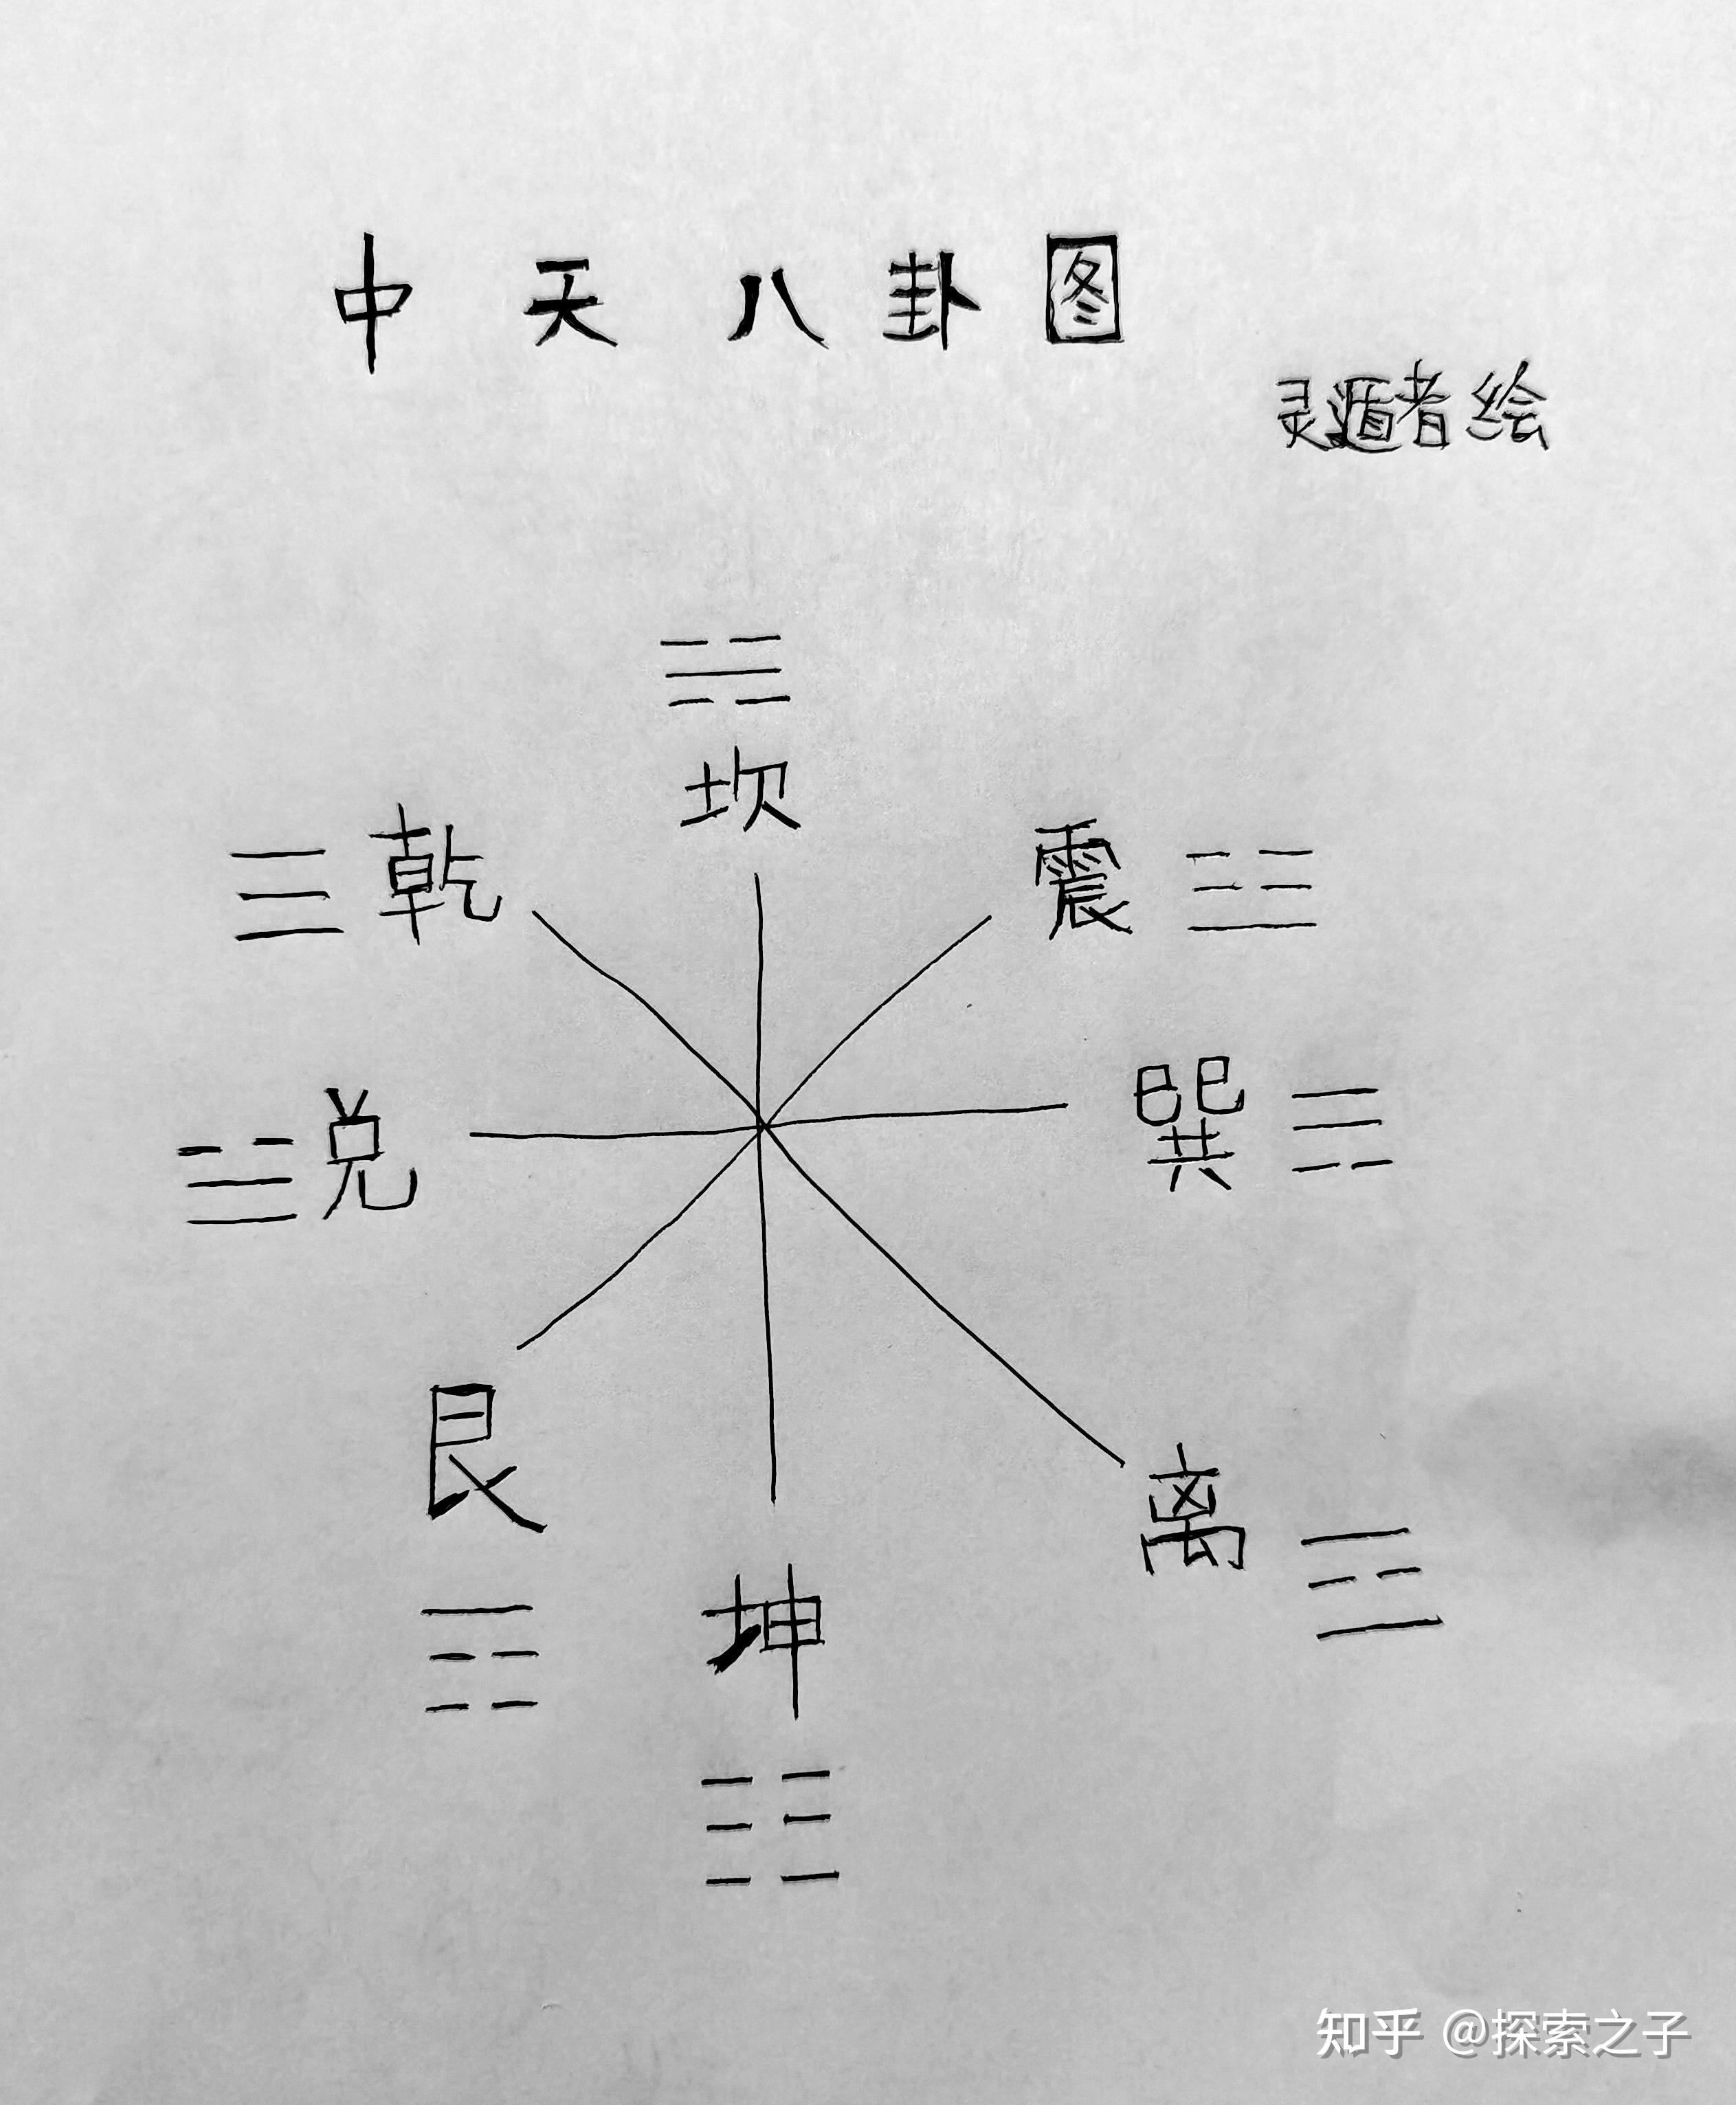 中天八卦图
灵遁者绘
坎
乾 震
兑 巽
艮 离
坤
知乎 @探索之子